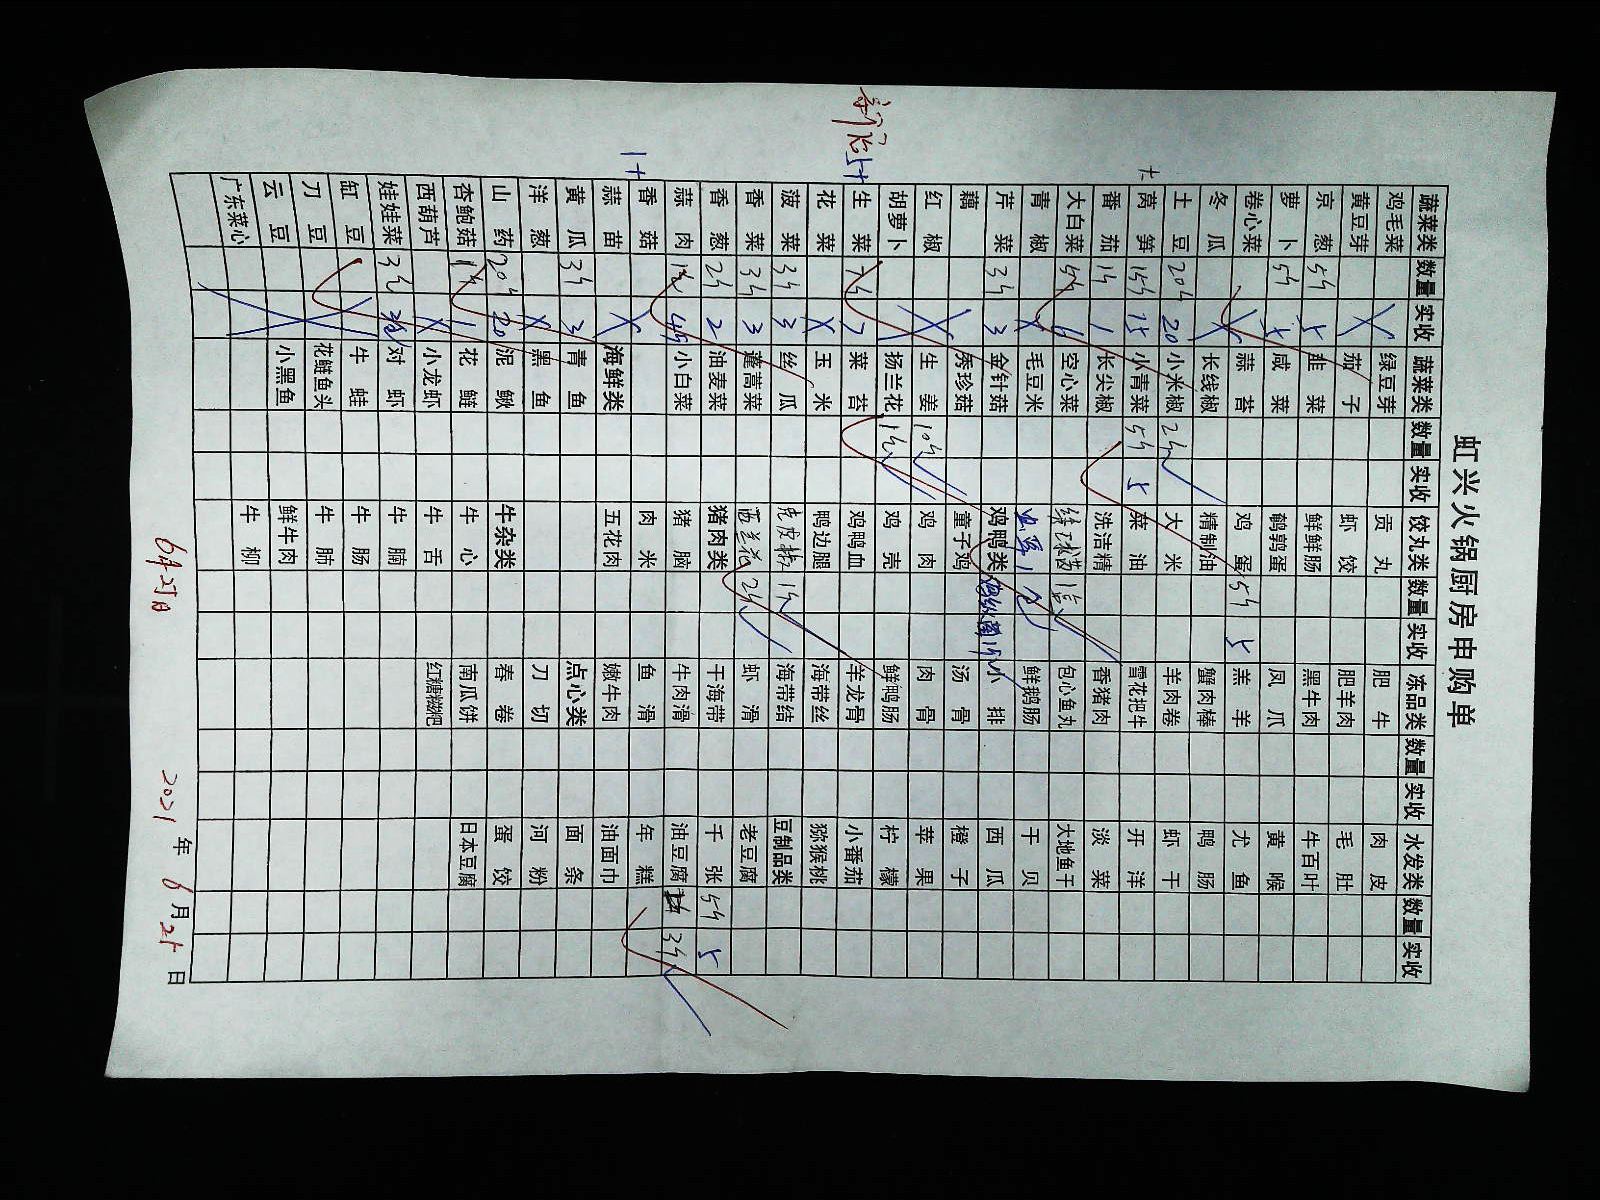 虹兴火锅厨房申购单
蔬菜类 数量 实收 蔬菜类 数量 实收 饺丸类 数量 实收 冻品类 数量 实收 水发类 数量 实收
鸡毛菜 绿豆芽 贡丸 肥牛 肉皮
黄豆芽 茄子 虾饺 肥羊肉 毛肚
京葱 5斤 5 韭菜 鲜鲜肠 黑牛肉 牛百叶
萝卜 5斤 5 咸菜 鹌鹑蛋 凤爪 黄喉
卷心菜 蒜苔 鸡蛋 5斤 5 羔羊 尤鱼
冬瓜 长线椒 精制油 蟹肉棒 鸭肠
土豆 20斤 20 小米椒 2斤 大米 羊肉卷 虾干
莴笋 15斤 15 小青菜 5斤 5 菜油 雪花把牛 开洋
番茄 1斤 1 长尖椒 洗洁精 香猪肉 淡菜
大白菜 6斤 6 空心菜 包心鱼丸 大地鱼干
青椒 毛豆米 鲜鹅肠 干贝
芹菜 3斤 3 金针菇 鸡鸭类 小排 西瓜
藕 秀珍菇 童子鸡 汤骨 橙子
红椒 生姜 10斤 鸡肉 肉骨 苹果
胡萝卜 扬兰花 1斤 鸡壳 鲜鸭肠 柠檬
生菜 7斤 7 菜苔 鸡鸭血 羊龙骨 小番茄
花菜 玉米 鸭边腿 海带丝 猕猴桃
菠菜 3斤 3 丝瓜 虎皮椒 1斤 海带结 豆制品类
香菜 3斤 3 蓬蒿菜 西兰花 2斤 虾滑 老豆腐
香葱 2斤 2 油麦菜 猪肉类 干海带 千张 5斤 5
蒜肉 4斤 小白菜 猪脑 牛肉滑 油豆腐 3斤
香菇 肉米 鱼滑 年糕
蒜苗 海鲜类 五花肉 嫩牛肉 油面巾
黄瓜 3斤 3 青鱼 点心类 面条
洋葱 黑鱼 刀切 河粉
山药 20斤 20 泥鳅 牛杂类 春卷 蛋饺
杏鲍菇 1斤 1 花鲢 牛心 南瓜饼 日本豆腐
西葫芦 小龙虾 牛舌 红糖糍粑
娃娃菜 3斤 对虾 牛腩
缸豆 牛蛙 牛肠
刀豆 花鲢鱼头 牛肺
云豆 小黑鱼 鲜牛肉
广东菜心 牛柳
6月25日 2021年6月25日